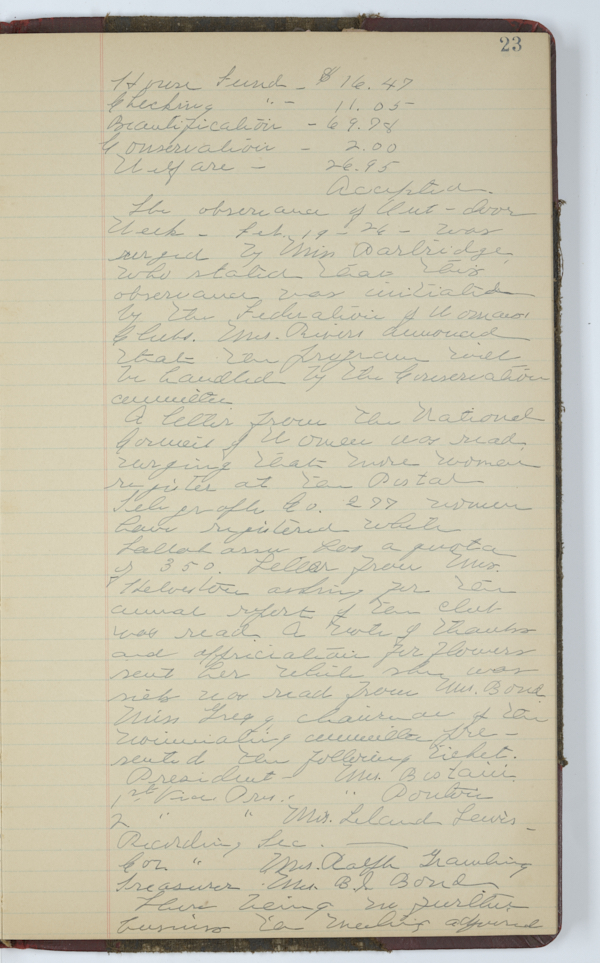 23
House Fund - $16.47
Checking " - 11.05
Beautification - 69.78
Conservation - 2.00
Welfare - 26.95
Accepted.
The observance of Out-door
Week - Feb. 19-26 - was
urged by Miss Partridge,
who stated that this
observance was initiated
by the Federation of Womans
Clubs. Mrs. Rivers announced
that the program will
be handled by the Conservation
committee
A letter from the National
Council of Women was read,
urging that more women
register at the Postal
Telegraph Co. 277 women
have registered while
Tallahassee has a quota
of 350. Letter from Mrs.
asking for the
annual report of the club
was read. A note of thanks
and appriciation for flowers
sent her while she was
sick was read from Mrs. Bond
Miss Gregg chairman of the
nominating committee pre-
sented the following ticket.
President - Mrs.
1st Vice Pres. "
2 " " Mrs. Leland Lewis -
Recording Sec. —
Cor " Mrs. Ralph Grambling
Treasurer Mrs B. Bond
There being no further
business the meeting adjourned